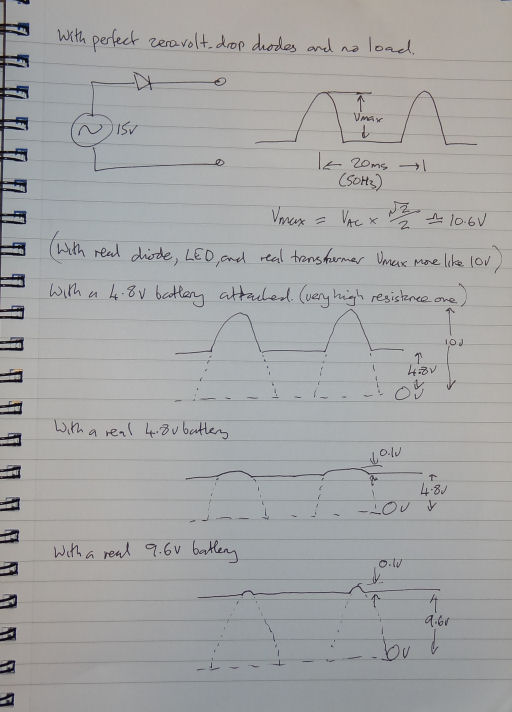 With perfect zero volt-drop diodes and no load.
15V
Vmax
20ms
(50Hz)
Vmax = VAC × √2/2 ≏ 10.6V
(With real diode, LED, and real transformer Vmax more like 10V)
With a 4.8V battery attached. (very high resistance one)
10V
4.8V
0V
With a real 4.8V battery
0.1V
4.8V
0V
With a real 9.6V battery
0.1V
9.6V
0V